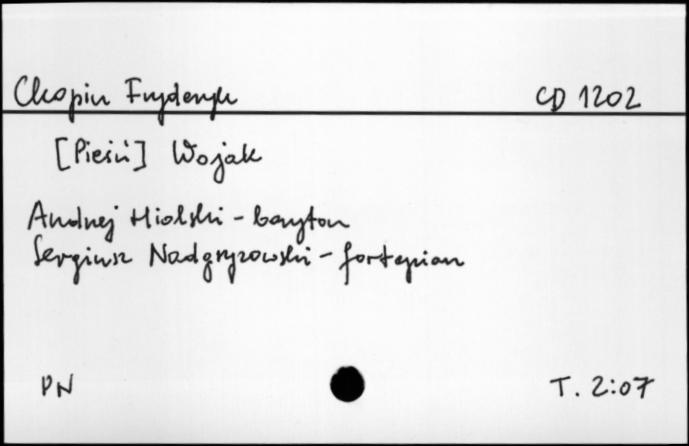 Chopin Fryderyk CD 1202
[Pieśń] Wojak
Andrzej Hiolski - baryton
Sergiusz Nadgryzowski - fortepian
PN T. 2:07